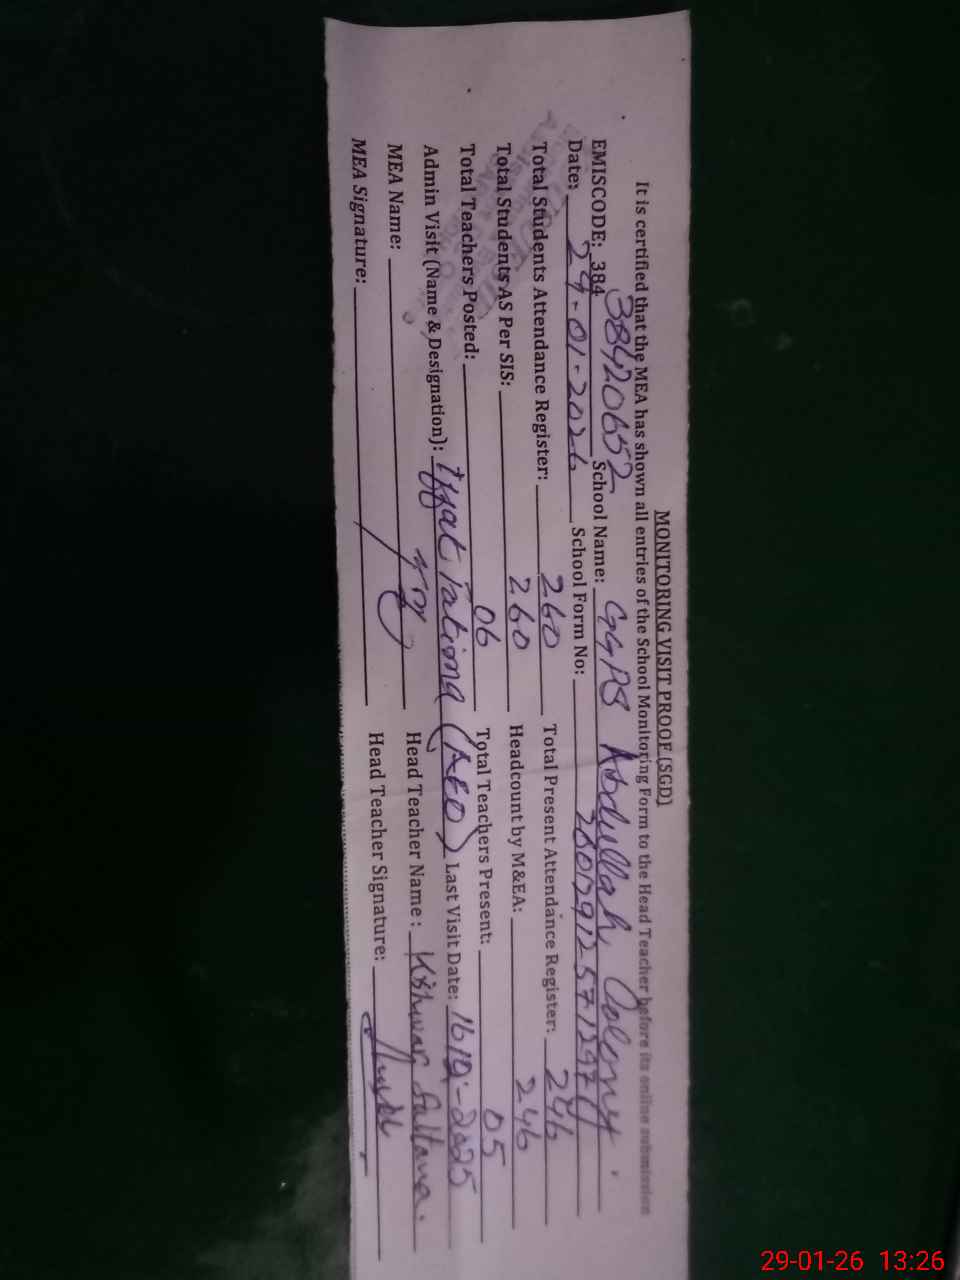 MONITORING VISIT PROOF (SGD)
It is certified that the MEA has shown all entries of the School Monitoring Form to the Head Teacher before its online submission
EMISCODE: 384 38420652 School Name: GGPS Abdullah Colony.
Date: 29-01-2026 School Form No:
Total Students Attendance Register: 260 Total Present Attendance Register: 246
Total Students AS Per SIS: 260 Headcount by M&EA: 246
Total Teachers Posted: 06 Total Teachers Present: 05
Admin Visit (Name & Designation): Iffat Fatima (AEO) Last Visit Date: 2025
MEA Name: Head Teacher Name : Kishwar Sultana.
MEA Signature: Head Teacher Signature:
29-01-26 13:26